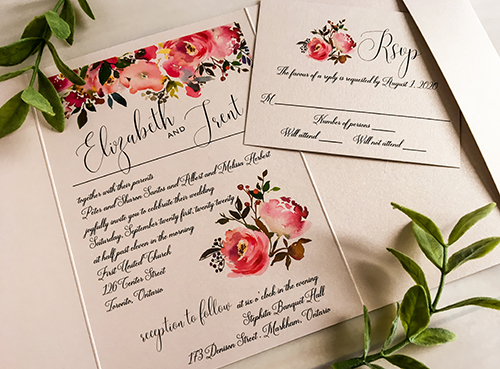 Elizabeth AND Trent
together with their parents
Peter and Sharon Santos and Albert and Melissa Herbert
joyfully invite you to celebrate their wedding
Saturday, September twenty first, twenty twenty
at half past eleven in the morning
First United Church
126 Center Street
Toronto, Ontario
reception to follow at six o'clock in the evening
Stephita Banquet Hall
173 Denison Street, Markham, Ontario
Rsvp
The favour of a reply is requested by August 1, 2020
M
Number of persons
Will attend Will not attend